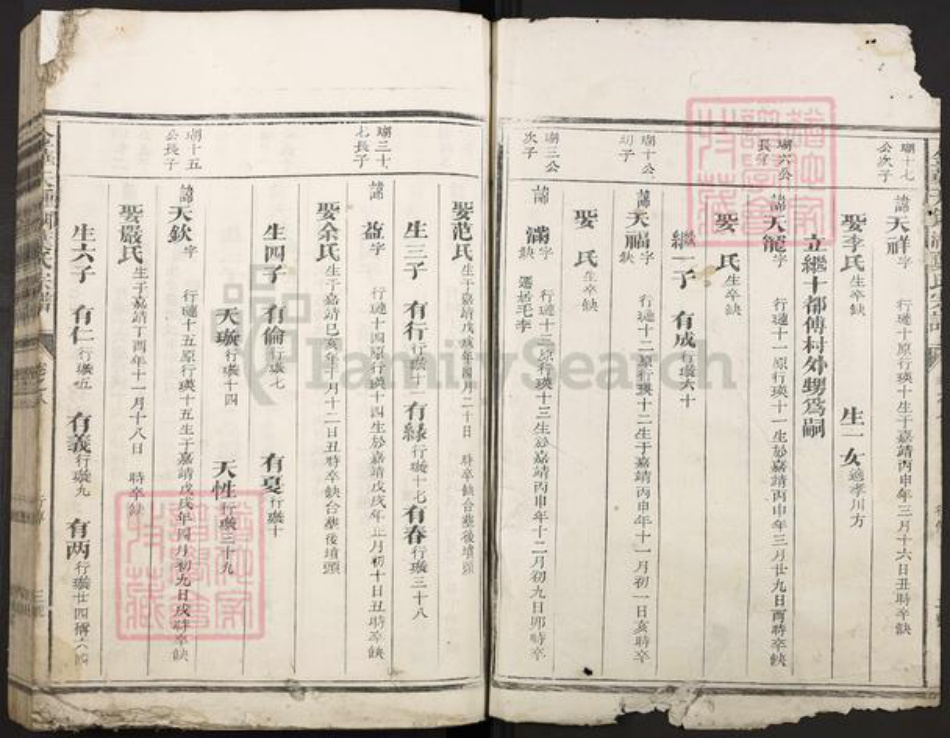 瑚十七
公次子
諱天祥字 行璉十原行瑛十生于嘉靖丙申年三月十六日丑時卒缺
娶李氏生卒缺 生一女適孝川方
立繼十都傅村外甥爲嗣
瑚六公
長子
諱天龍字 行璉十一原行瑛十一生於嘉靖丙申年三月廿九日酉時卒缺
娶 氏生卒缺
繼一子 有成行璣六十
瑚十公
幼子
諱天福字 行璉十二原行瑛十二生于嘉靖丙申年十一月初一日亥時卒
缺
娶 氏生卒缺
瑚三公
次子
諱 滿字 行璉十三原行瑛十三生於嘉靖丙申年十二月初九日卯時卒
缺 遷居毛李
娶范氏生于嘉靖戊戌年四月二十日 時卒缺合塟後墳頭
生三子 有行行璣十一 有緣行璣十七 有春行璣三十八
瑚三十
七長子
諱 益字 行璉十四原行瑛十四生於嘉靖戊戌年正月初十日丑時卒缺
娶余氏生于嘉靖己亥年十月十二日丑時卒缺合塟後墳頭
生四子 有倫行璣七 有夏行璣十
天璇行璣十四 天性行璣三十九
瑚十五
公長子
諱天欽字 行璉十五原行瑛十五生于嘉靖戊戌年四月初九日戌時卒缺
娶嚴氏生于嘉靖丁酉年十一月十八日 時卒缺
生六子 有仁行璣五 有義行璣九 有两行璣廿四
FamilySearch